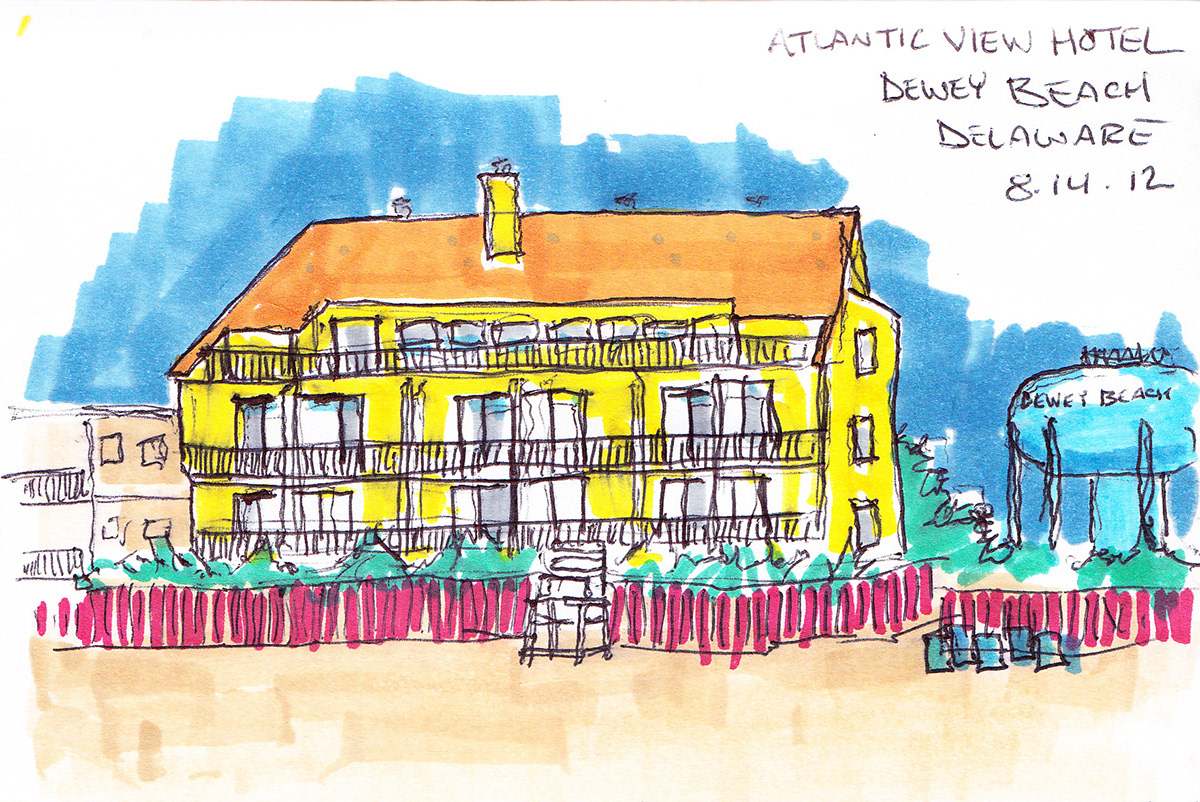 ATLANTIC VIEW HOTEL
DEWEY BEACH
DELAWARE
8.14.12
DEWEY BEACH